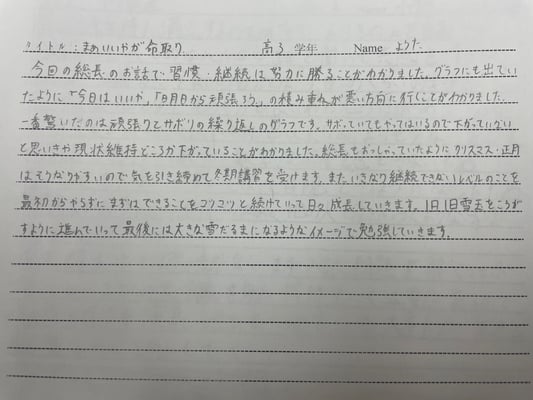 タイトル：まぁいいやが命取り　高3 学年　Name ようた
今回の総長のお話で習慣・継続は努力に勝ることがわかりました。グラフにも出てい
たように「今日はいいか」「明日から頑張ろう」の積み重ねが悪い方向に行くことがわかりました。
一番驚いたのは頑張りとサボりの繰り返しのグラフです。サボっていてもやってはいるので下がっていない
と思いきや現状維持どころか下がっていることがわかりました。総長もおっしゃっていたようにクリスマス・正月
はそうなりやすいので気を引き締めて冬期講習を受けます。また、いきなり継続できないレベルのことを
最初からやらずにまずはできることをコツコツと続けていって日々成長していきます。1日1日雪玉をころが
すように進んでいって最後には大きな雪だるまになるようなイメージで勉強していきます。